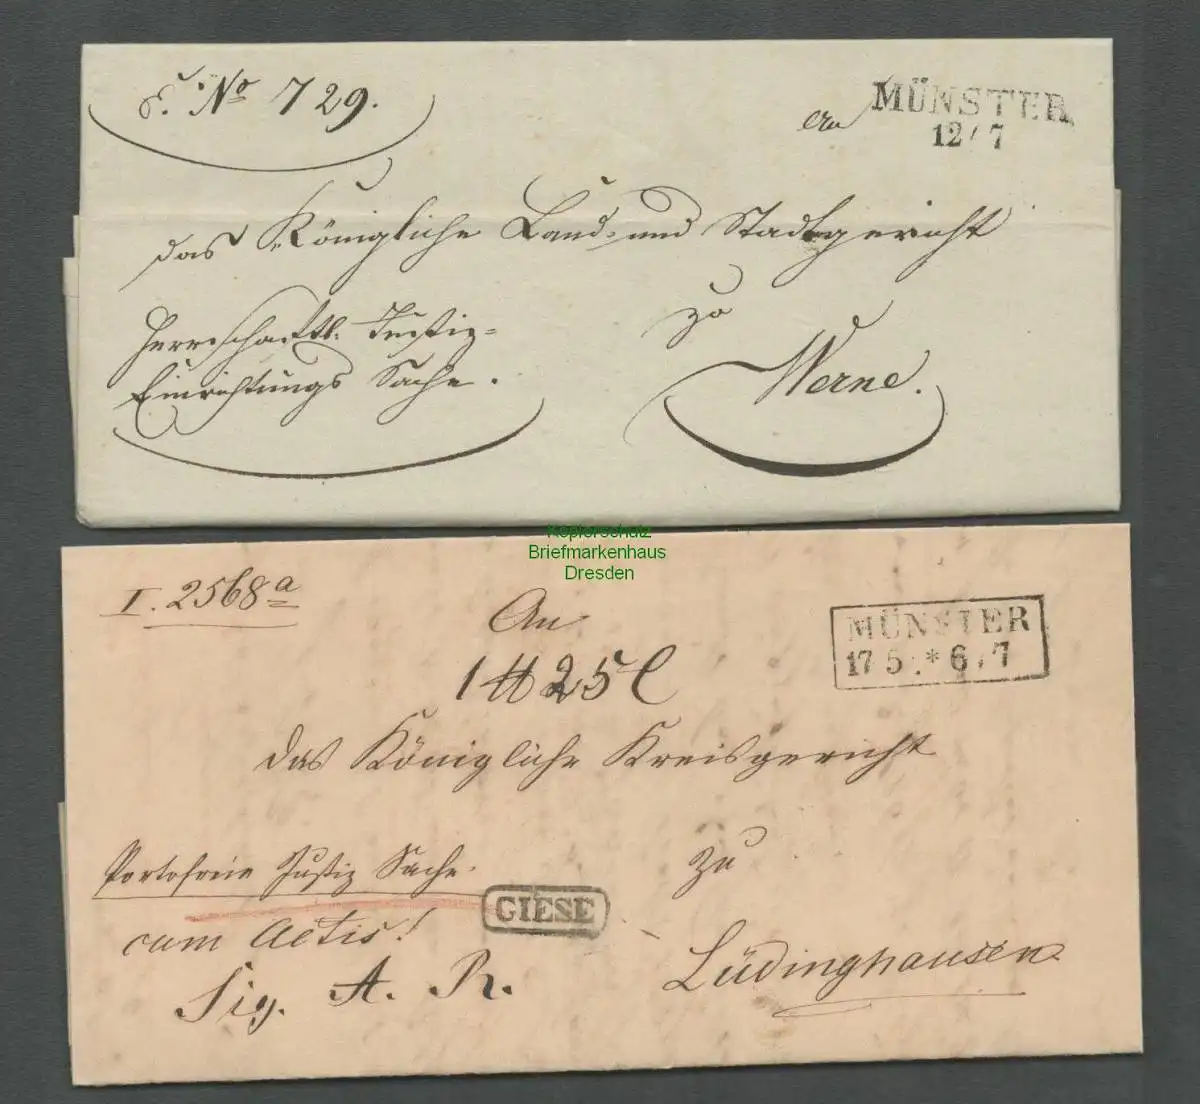 E. No 729.
An MÜNSTER
12/7
das Königliche Land- und Stadtgericht
Herrschaftl. Justiz-
Einrichtungs Sache.
zu
Werne.
Kopierschutz
Briefmarkenhaus
Dresden
I. 2568 a
An
MÜNSTER
17 5. * 6 / 7
1 ℔ 25 l
das Königliche Kreisgericht
Portofreie Justiz Sache.
zu
GIESE
cum Actis!
Lüdinghausen
Sig. A. R.